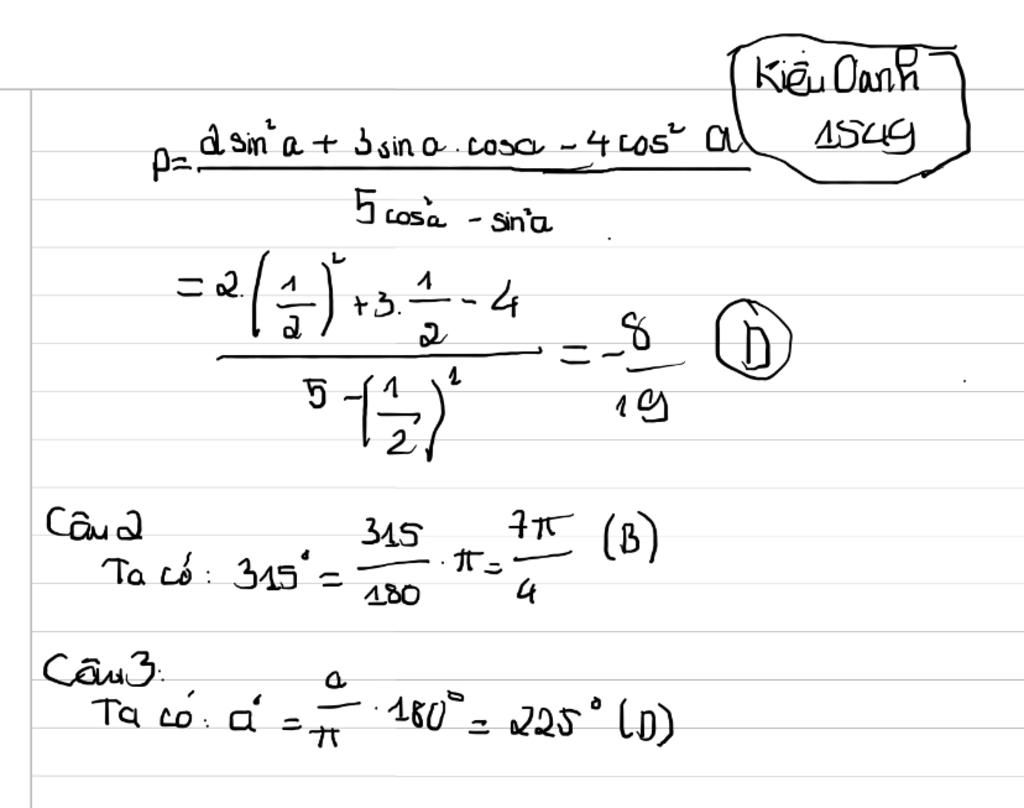 Kiều Oanh
1549
P = \frac{2 sin² a + 3 sin a . cos a - 4 cos² a}{5 cos² a - sin² a}
= \frac{2. (\frac{1}{2})² + 3. \frac{1}{2} - 4}{5 - (\frac{1}{2})²} = -\frac{8}{19} (D)
Câu 2
Ta có: 315° = \frac{315}{180} . π = \frac{7π}{4} (B)
Câu 3:
Ta có: a° = \frac{a}{π} . 180° = 225° (D)